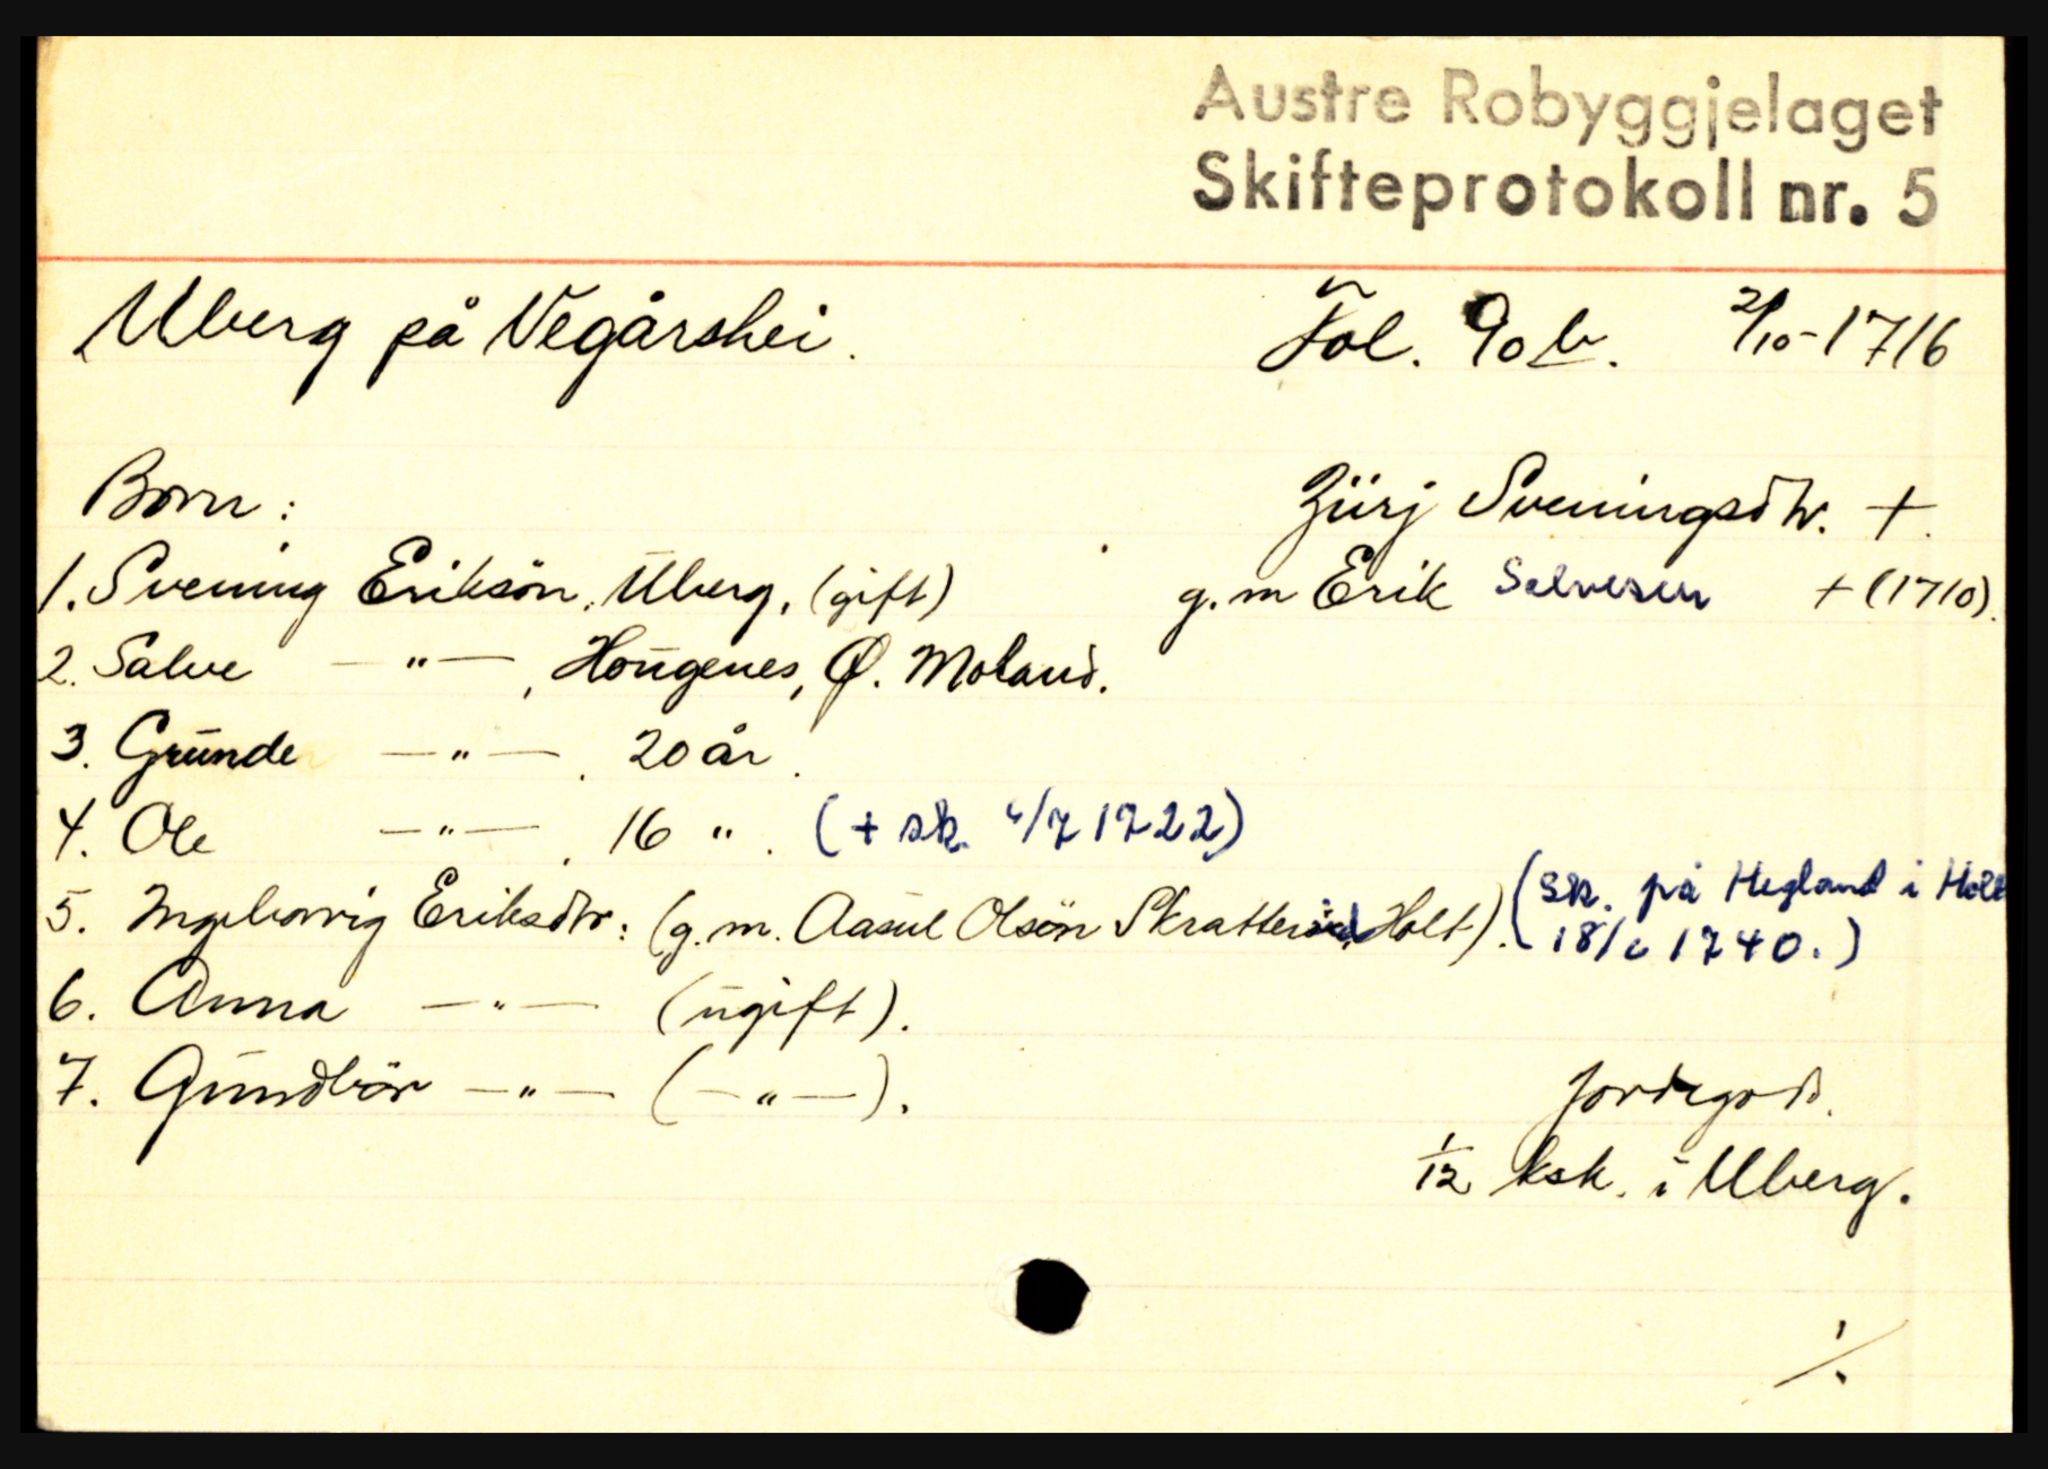 Austre Robyggjelaget
Skifteprotokoll nr. 5
Uberg på Vegårshei. Fol. 90 b. 2/10-1716
Born: Zürj Sveningsdtr. +.
1. Svening Eriksön, Uberg, (gift) g.m Erik Salvesen + (1710).
2. Salve —"—, Hougenes, Ø. Moland.
3. Grunde —"—. 20 år.
4. Ole —"—. 16 ". (+ sk. 4/7 1722)
5. Ingeborrig Eriksdtr: (g.m. Aasul Olsön Holt). (sk. på Hegland i Holt
18/6 1740.)
6. Anna —"— (ugift).
7. Gundbör —"— (—"—).
Jordegods.
1/12 ksk. i Uberg.